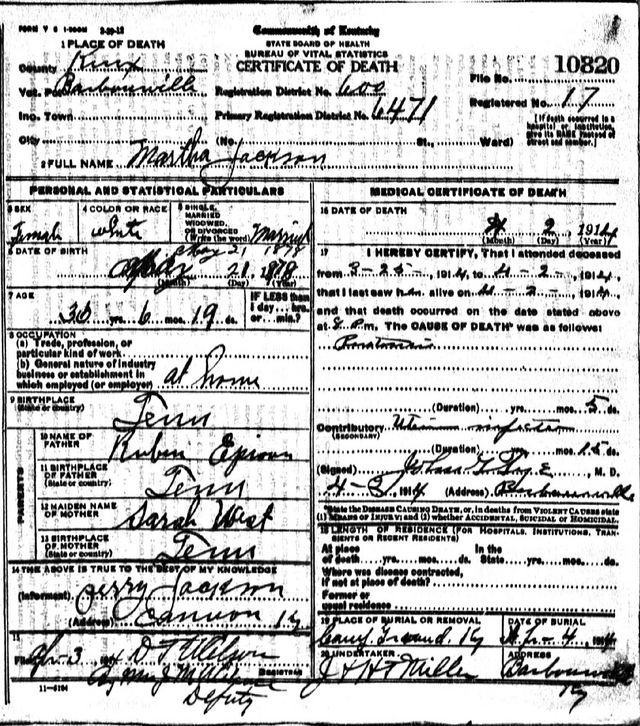 FORM V S 1-350M 3-29-12
Commonwealth of Kentucky
STATE BOARD OF HEALTH
BUREAU OF VITAL STATISTICS
CERTIFICATE OF DEATH
10820
1 PLACE OF DEATH
County Knox
Vot. Pct Barbourville
Inc. Town
City
Registration District No. 600
Primary Registration District No. 6471
File No.
Registered No. 17
(No. St., Ward)
[If death occurred in a hospital or institution, give its NAME instead of street and number.]
2 FULL NAME Martha Jackson
PERSONAL AND STATISTICAL PARTICULARS
3 SEX Female
4 COLOR OR RACE White
5 SINGLE, MARRIED WIDOWED, OR DIVORCED (Write the word) Married
6 DATE OF BIRTH
21, 1878
21, 1878
(Month) (Day) (Year)
7 AGE
36 yrs. 6 mos. 19 ds.
IF LESS than 1 day... hrs. or... min.?
8 OCCUPATION
(a) Trade, profession, or particular kind of work
(b) General nature of industry business or establishment in which employed (or employer) at home
9 BIRTHPLACE (State or country) Tenn
PARENTS
10 NAME OF FATHER Rubin
11 BIRTHPLACE OF FATHER (State or country) Tenn
12 MAIDEN NAME OF MOTHER Sarah West
13 BIRTHPLACE OF MOTHER (State or country) Tenn
14 THE ABOVE IS TRUE TO THE BEST OF MY KNOWLEDGE
(Informant) Jerry Jackson
(Address) Cannon Ky
15
Filed 3, 1914 D T Wilson
REGISTRAR
Deputy
11-5184
MEDICAL CERTIFICATE OF DEATH
16 DATE OF DEATH
2, 1914
(Month) (Day) (Year)
17 I HEREBY CERTIFY, That I attended deceased
from 3-25-, 1914, to 4-2-, 1914,
that I last saw her alive on 4-2-, 1914,
and that death occurred on the date stated above
at 8 P.m. The CAUSE OF DEATH* was as follows:
(Duration) yrs. mos. 5 ds.
Contributory (SECONDARY) infection
(Duration) yrs. mos. 15 ds.
(Signed) M. D.
4-3, 1914 (Address) Barbourville
*State the DISEASE CAUSING DEATH, or, in deaths from VIOLENT CAUSES state (1) MEANS OF INJURY; and (2) whether ACCIDENTAL, SUICIDAL or HOMICIDAL.
18 LENGTH OF RESIDENCE (FOR HOSPITALS, INSTITUTIONS, TRANSIENTS OR RECENT RESIDENTS)
At place of death yrs. mos. ds. In the State yrs. mos. ds.
Where was disease contracted, if not at place of death?
Former or usual residence
19 PLACE OF BURIAL OR REMOVAL Ky
DATE OF BURIAL 4, 1914
20 UNDERTAKER Miller
ADDRESS Barbourville Ky